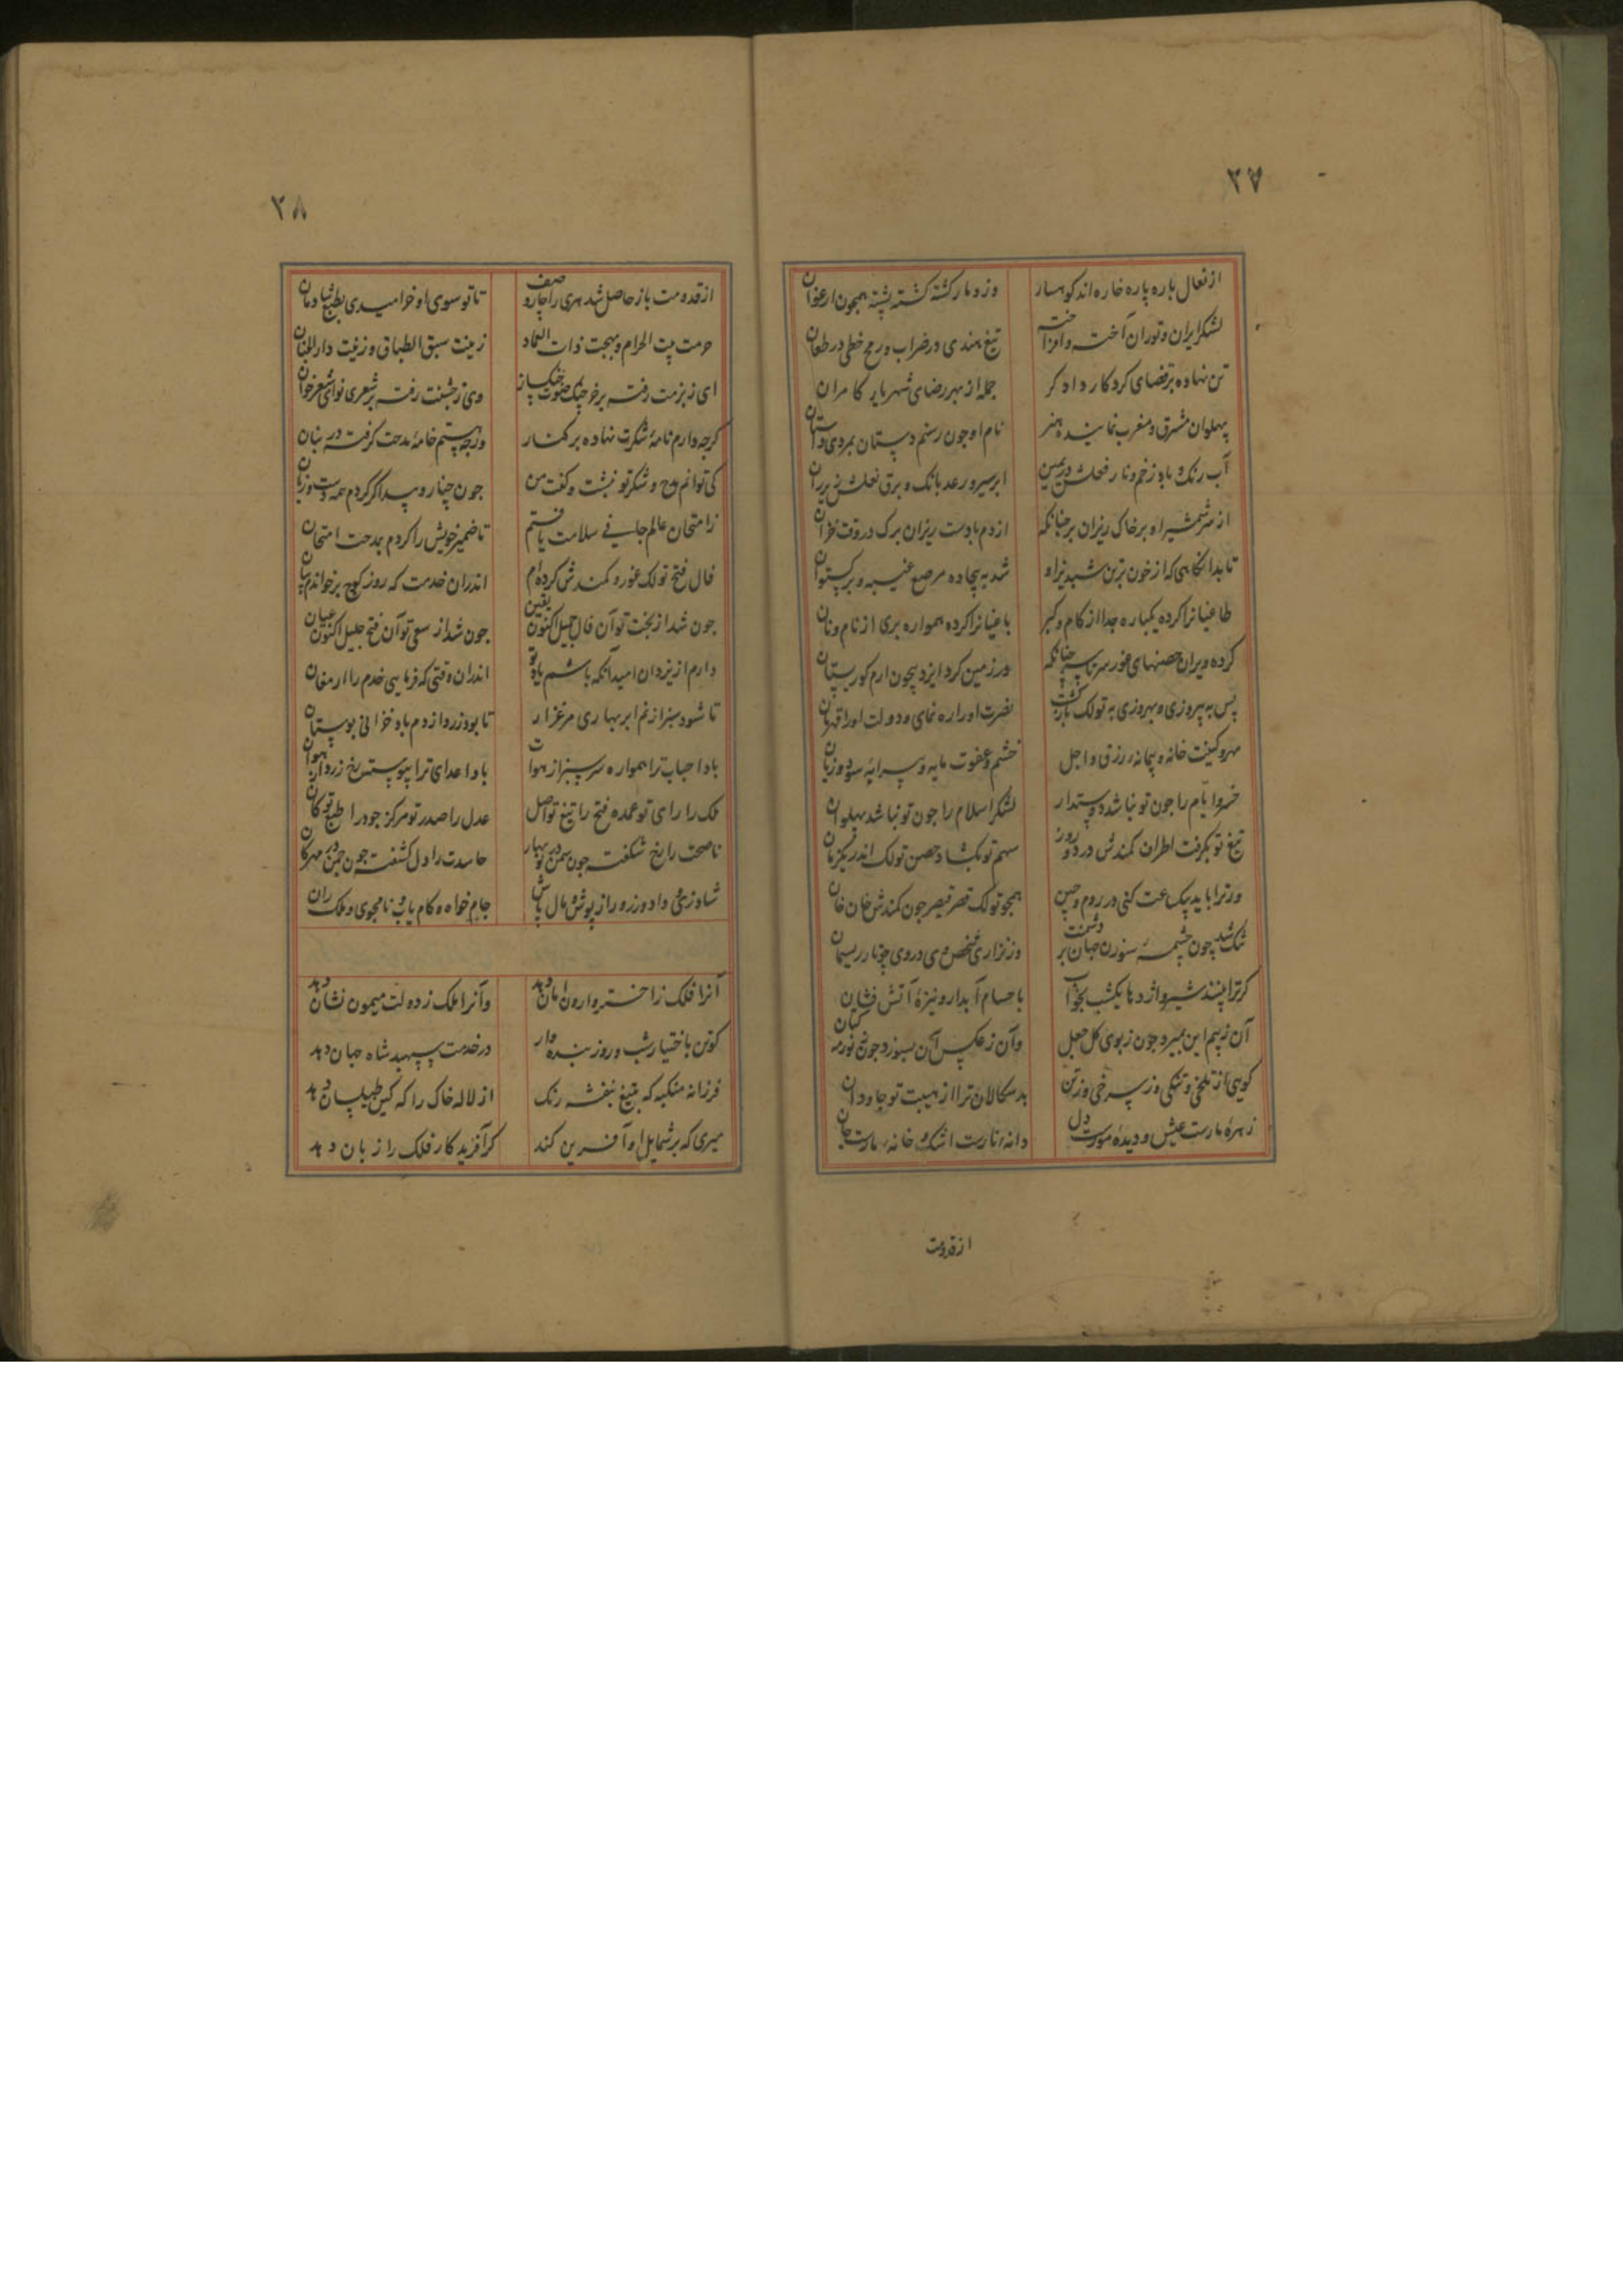 ۲۷
از نعال باره پاره خاره اندر کوهسار وز دمار کشته کشته پشته همچون ارغوان
لشکر ایران و توران آخته و افراخته تیغ هندی در ضراب و رمح خطی در طعان
تن نهاده بر قضای کردکار دادکر جمله از بهر رضای شهریار کامران
پهلوان مشرق و مغرب نماینده هنر نام او چون رستم دستان بمردی داستان
آب رنک و باد زخم و نار فعلش در یمین ابر سیر و رعد بانک و برق نعلش زیر ران
از سر شمشیر او بر خاک ریزان سر چنانکه از دم باد ست ریزان برک در وقت خزان
تا بدانکاهی که از خون برتن شبدیز او شد به بیجاده مرصع غیبه و برکستوان
طاغیانرا کرده یکباره جدا از کام و کبر باغیانرا کرده همواره بری از نام و نان
کرده ویران حصنهای غور سرتاسر چنانکه در زمین کرد ایزد بیچون ارم کورستان
پس به پیروزی و بهروزی به تولک بازکشت نصرت او را ره نمای و دولت او را قهرمان
مهر و کینت خانه و پیمانه رزق و اجل خشم و عفوت مایه و سرایه سود و زیان
خسروا ایام را چون تو نباشد دوستدار لشکر اسلام را چون تو نباشد پهلوان
تیغ تو بکرفت اطراف کمندش در دو روز سهم تو بکشاد حصن تولک اندر یکزمان
ور ترا باید بیک ساعت کنی در روم و چین همچو تولک قصر قیصر چون کمندش خان خان
تنک شد چون چشمه سوزن جهان بر دشمنت وز نزاری شخص وی در وی چو تار ریسمان
کر ترا بینند شیر و اژدها یکشب بخواب با حسام آبدار و نیزه آتش فشان
آن ز بیم این بمیرد چون ز بوی کل جعل وآن ز عکس آن بسوزد چون ز نور مه کتان
کویی از تلخی و تنکی وز سرخی و ز تن بدسکالان ترا از هیبت تو جاودان
زهره مارست عیش و دیده مورست دل دانه نارست اشک و خانه مارست جان
از قدومت
۲۸
از قدومت باز حاصل شد هری را چار وصف تا تو سوی او خرامیدی بطبع شادمان
حرمت بیت الحرام و بهجت ذات العماد زینت سبق الطباق و زینت دار الجنان
ای ز بزمت رفته بر خرچنک صوت چنک ساز وی ز جشنت رفته بر شعری نوای شعرخوان
کرچه دارم نامه شکرت نهاده بر کنار ورچه هستم خامه مدحت کرفته در بنان
کی توانم مدح و شکر تو نبشت و کفت من چون چنار و بید اکر کردم همه دست و زبان
ز امتحان عالم جافی سلامت یافتم تا ضمیر خویش را کردم بمدحت امتحان
فال فتح تولک غور و کمندش کرده ام اندران خدمت که روز کوچ بر خواندم بیان
چون شد از بخت تو آن فال جمیل اکنون یقین چون شد از سعی تو آن فتح جلیل اکنون عیان
دارم از یزدان امید آنکه باشم یاد تو اندران وقتی که فرمایی خدم را ارمغان
تا شود سبز از نم ابر بهاری مرغزار تا بود زرد از دم باد خزانی بوستان
باد احباب ترا همواره سر سبز از هوات باد اعدای ترا پیوسته رخ زرد از هوان
ملک را رای تو عمده فتح را تیغ تو اصل عدل را صدر تو مرکز جود را طبع تو کان
ناصحت را رخ شکفته چون سمن در نوبهار حاسدت را دل کشفته چون چمن در مهرکان
شاد زی و داد ورز و راز پوش و مال پاش جام خواه و کام یاب و نامجوی و ملک ران
آنرا فلک ز اختر وارون امان دهد وآنرا ملک ز دولت میمون نشان دهد
کو تن باختیار شب و روز بنده وار در خدمت سپهبد شاه جهان دهد
فرزانه منکبه که بتیغ بنفشه رنک از لاله خاک را کین طیلسان دهد
میری که بر شمایل او آفرین کند کر آفریدکار فلک را زبان دهد